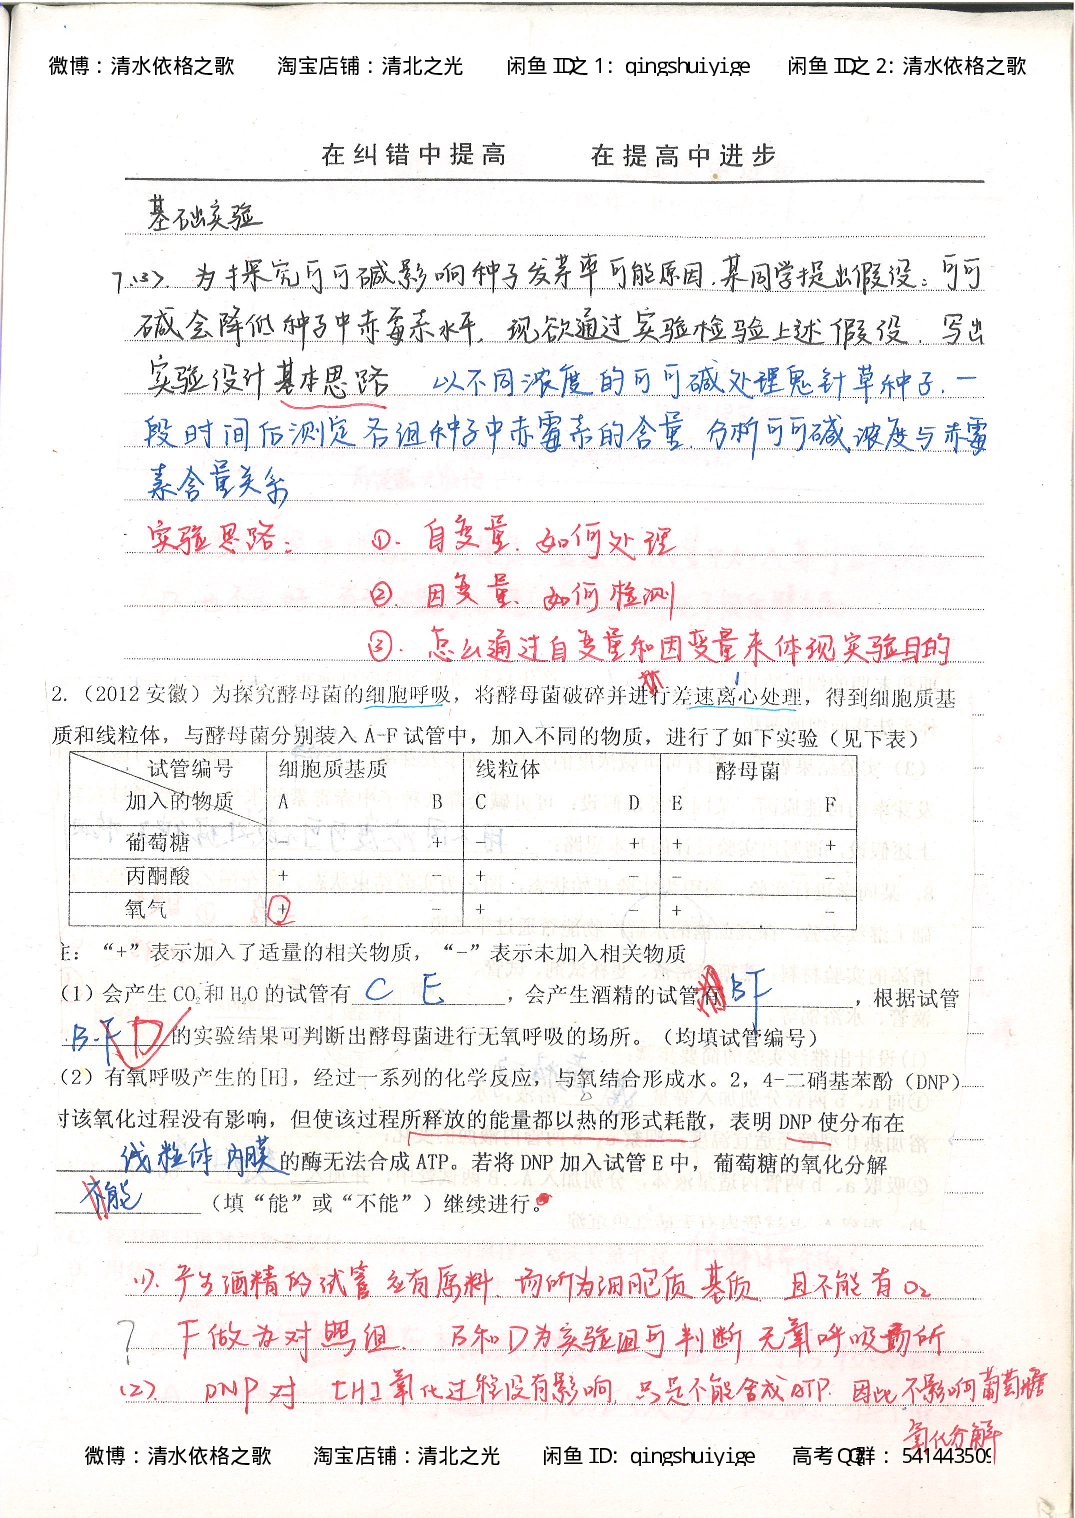 微博：清水依格之歌 淘宝店铺：清北之光 闲鱼ID之1：qingshuiyige 闲鱼ID之2：清水依格之歌
在纠错中提高 在提高中进步
基础实验
7.(3). 为探究可可碱影响种子发芽率可能原因,某同学提出假设：可可
碱会降低种子中赤霉素水平. 现欲通过实验检验上述假设. 写出
实验设计基本思路 以不同浓度的可可碱处理鬼针草种子.一
段时间后测定各组种子中赤霉素的含量.分析可可碱浓度与赤霉
素含量关系
实验思路： ①. 自变量. 如何处理
②. 因变量. 如何检测
③. 怎么通过自变量和因变量来体现实验目的
2.（2012安徽）为探究酵母菌的细胞呼吸，将酵母菌破碎并进行差速离心处理，得到细胞质基
质和线粒体，与酵母菌分别装入A-F试管中，加入不同的物质，进行了如下实验（见下表）
试管编号 细胞质基质 线粒体 酵母菌
加入的物质 A B C D E F
葡萄糖 - + - + + +
丙酮酸 + - + - - -
氧气 + - + - + -
注：“+”表示加入了适量的相关物质，“-”表示未加入相关物质
(1) 会产生CO₂和H₂O的试管有 C E ，会产生酒精的试管有 B F ，根据试管
B.F D 的实验结果可判断出酵母菌进行无氧呼吸的场所。（均填试管编号）
(2) 有氧呼吸产生的[H]，经过一系列的化学反应，与氧结合形成水。2，4-二硝基苯酚（DNP）
对该氧化过程没有影响，但使该过程所释放的能量都以热的形式耗散，表明DNP使分布在
线粒体内膜 的酶无法合成ATP。若将DNP加入试管E中，葡萄糖的氧化分解
不能 （填“能”或“不能”）继续进行。
(1). 产生酒精的试管应有原料.场所为细胞质基质.且不能有O₂
? F做为对照组. B和D为实验组可判断无氧呼吸场所
(2). DNP对[H]氧化过程没有影响.只是不能合成ATP.因此不影响葡萄糖
氧化分解
微博：清水依格之歌 淘宝店铺：清北之光 闲鱼ID: qingshuiyige 高考QQ群：541443509